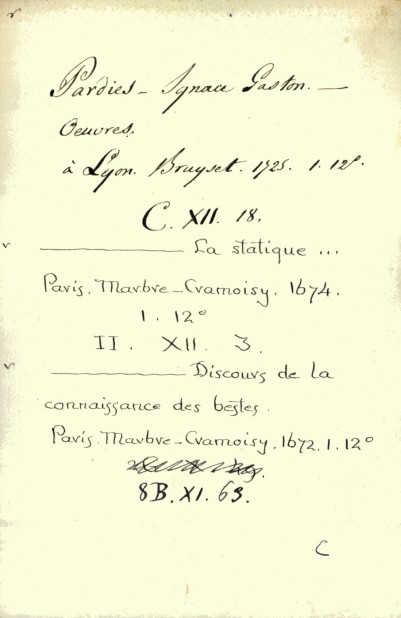 Pardies - Ignace Gaston. —
Oeuvres.
à Lyon. Bruyset. 1725. 1. 12°.
C. XII. 18.
———— La statique ...
Paris. Marbre-Cramoisy. 1674.
1. 12°
II. XII. 3.
———— Discours de la
connaissance des bestes.
Paris. Marbre-Cramoisy. 1672. 1. 12°
8B. XI. 63.
C